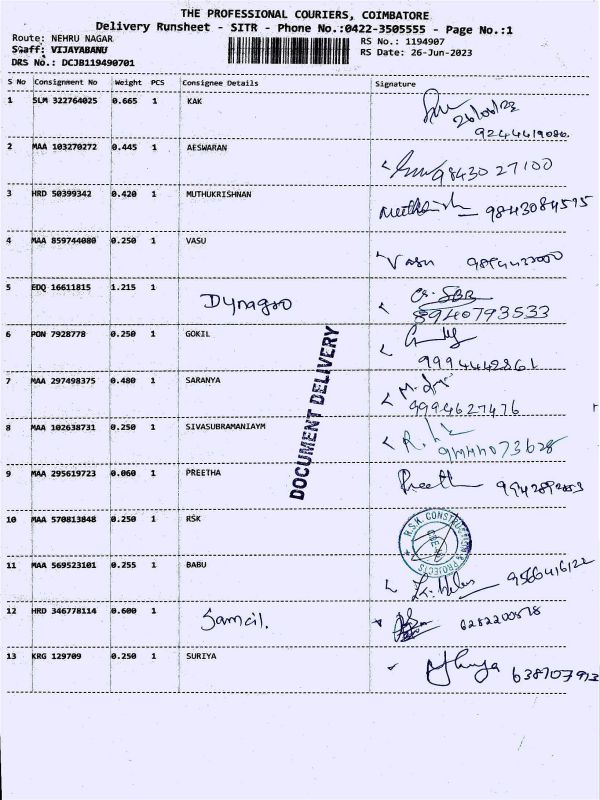 THE PROFESSIONAL COURIERS, COIMBATORE
Delivery Runsheet - SITR - Phone No.:0422-3505555 - Page No.:1
Route: NEHRU NAGAR
RS No.: 1194907
Staff: VIJAYABANU
RS Date: 26-Jun-2023
DRS No.: DCJB119490701
S No Consignment No Weight PCS Consignee Details Signature
1 SLM 322764025 0.665 1 KAK
26/06/23
9244419086
2 MAA 103270272 0.445 1 AESWARAN
9843027100
3 HRD 50399342 0.420 1 MUTHUKRISHNAN
9843084515
4 MAA 859744080 0.250 1 VASU
Vasu
5 EDQ 16611815 1.215 1 Dynagro
8940793533
6 PON 7928778 0.250 1 GOKIL
9994442861
7 MAA 297498375 0.480 1 SARANYA
9994627476
8 MAA 102638731 0.250 1 SIVASUBRAMANIAYM
9 MAA 295619723 0.060 1 PREETHA
Preetha
10 MAA 570813848 0.250 1 RSK
CONSTRUCTION & PROJECTS
11 MAA 569523101 0.255 1 BABU
9566416122
12 HRD 346778114 0.600 1 Samcil.
6282200578
13 KRG 129709 0.250 1 SURIYA
638707913
DOCUMENT DELIVERY